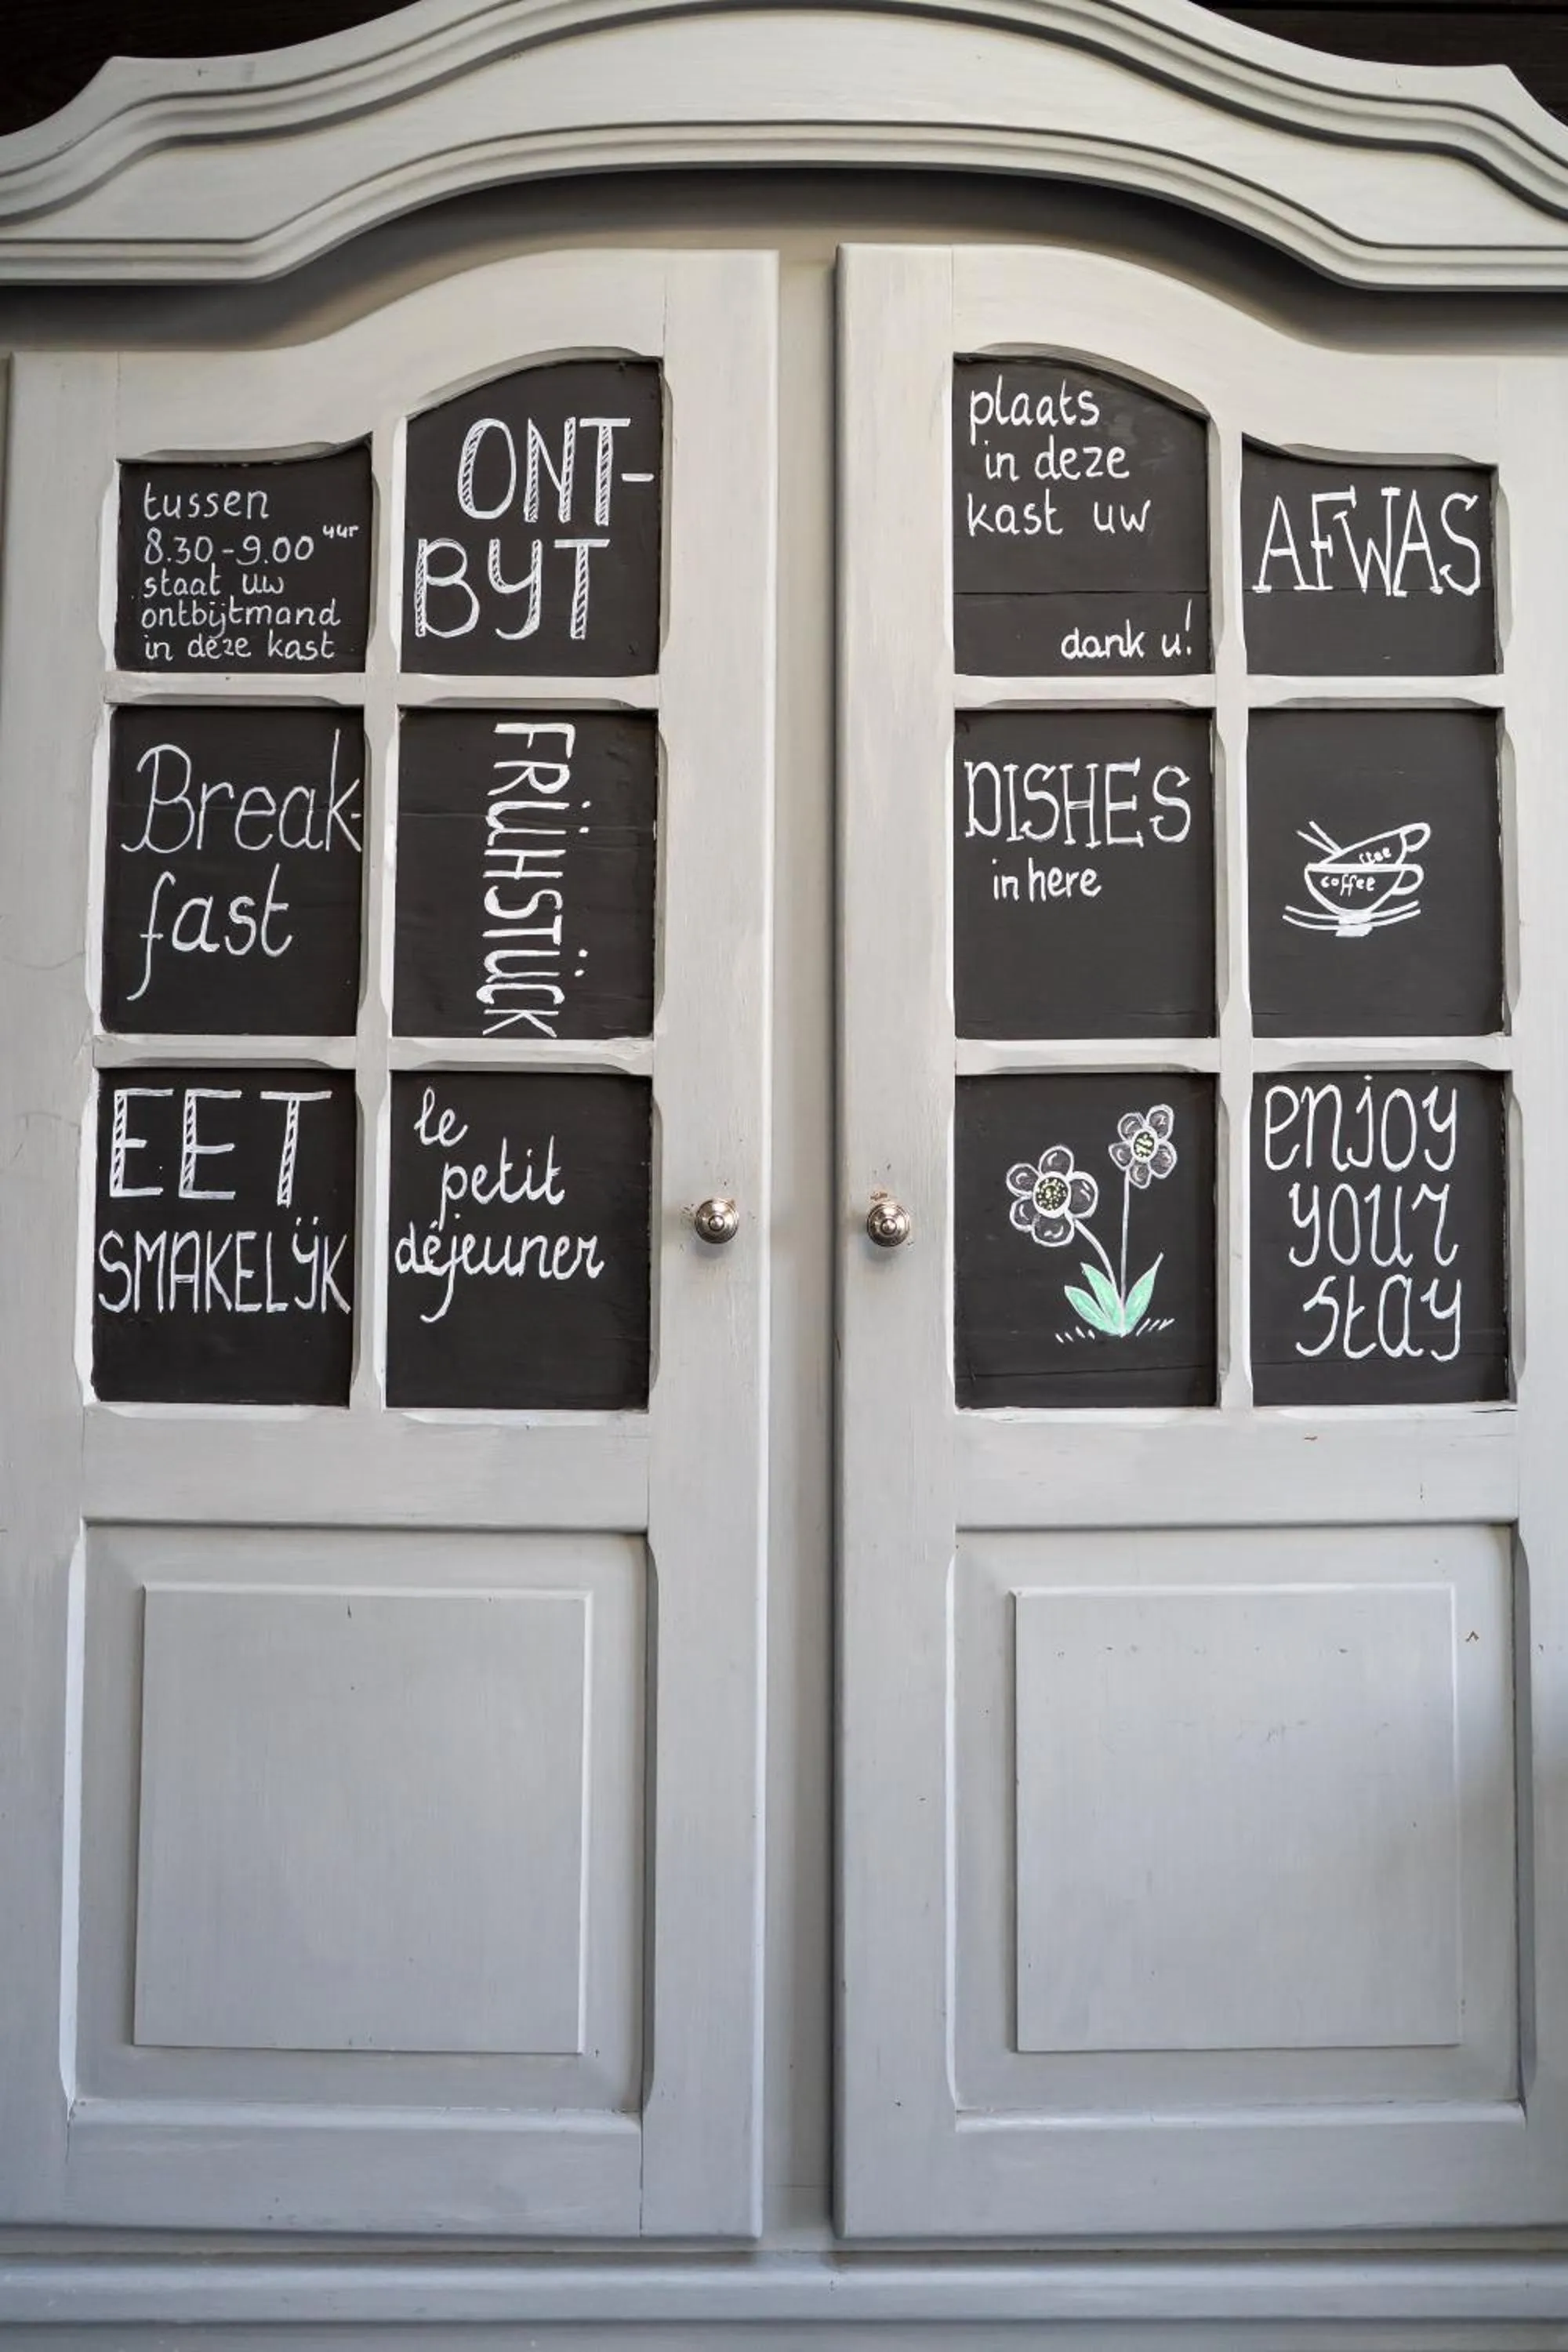 tussen
8.30-9.00 uur
staat uw
ontbijtmand
in deze kast
ONT-
BYT
Break-
fast
FRÜHSTÜCK
EET
SMAKELŸK
le
petit
déjeuner
plaats
in deze
kast uw
dank u!
AFWAS
DISHES
in here
tee
coffee
enjoy
your
stay